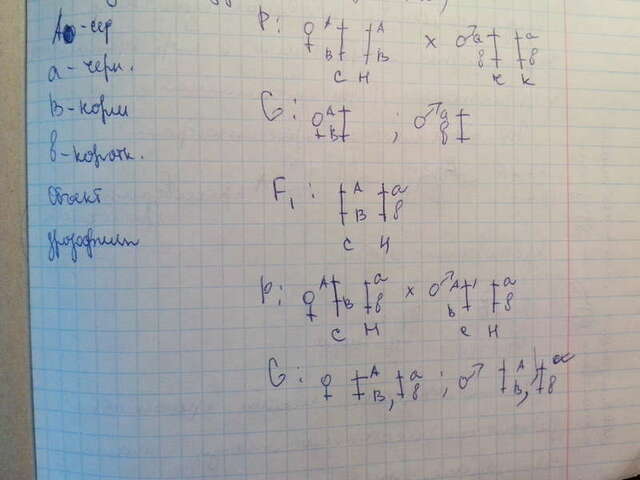 А - сер
а - черн.
В - норм
в - коротк.
Объект
дрозофила
P: ♀ A A B B × ♂ a a в в
с н ч к
G: ♀ A B ; ♂ a в
F₁: A a B в
с н
P: ♀ A a B в × ♂ A a b в
с н с н
G: ♀ A B, a в ; ♂ A B, a в